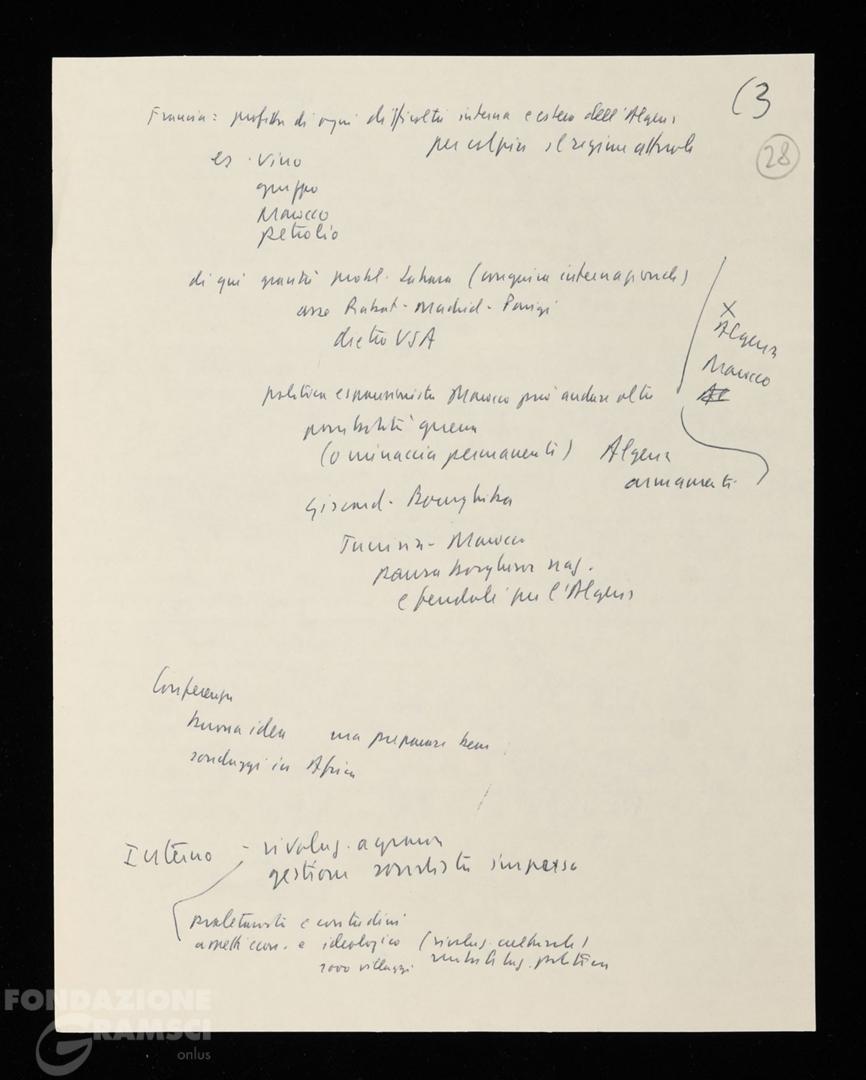 (3
28
Francia: profitta di ogni difficoltà interna e estera dell'Algeria
per colpire il regime attuale
es. vino
gruppo
Marocco
petrolio
di qui gravità probl. Sahara (congiura internazionale)
asse Rabat - Madrid - Parigi
dietro USA
X
Algeria
Marocco
politica espansionista Marocco può andare oltre
possibilità guerra
(o minaccia permanente) Algeria
armamenti
Giscard - Bourghiba
Tunisia - Marocco
paura borghesie naz.
e feudali per l'Algeria
Conferenza
buona idea ma preparare bene
sondaggi in Africa
Interno - rivoluz. agraria
gestione socialista impresa
proletariato e contadini
aspetti econ. e ideologico (rivoluz. culturale)
1000 villaggi mobilitaz. politica
FONDAZIONE
GRAMSCI
onlus